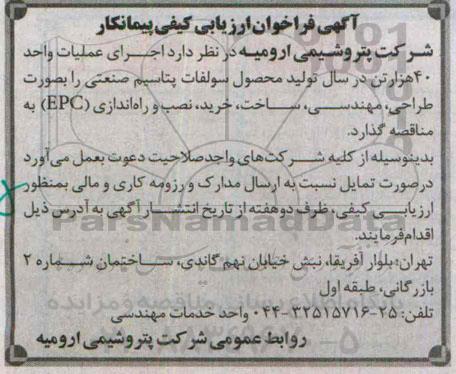 آگهی فراخوان ارزیابی کیفی پیمانکار
شرکت پتروشیمی ارومیه در نظر دارد اجرای عملیات واحد
۴۰هزارتن در سال تولید محصول سولفات پتاسیم صنعتی را بصورت
طراحی، مهندسی، ساخت، خرید، نصب و راه‌اندازی (EPC) به
مناقصه گذارد.
بدینوسیله از کلیه شرکت‌های واجدصلاحیت دعوت بعمل می‌آورد
درصورت تمایل نسبت به ارسال مدارک و رزومه کاری و مالی بمنظور
ارزیابی کیفی، ظرف دوهفته از تاریخ انتشار آگهی به آدرس ذیل
اقدام‌فرمایند.
ParsNamadData
تهران: بلوار آفریقا، نبش خیابان نهم گاندی، ساختمان شماره ۲
بازرگانی، طبقه اول
تلفن: ۲۵-۳۲۵۱۵۷۱۶-۰۴۴ واحد خدمات مهندسی
روابط عمومی شرکت پتروشیمی ارومیه